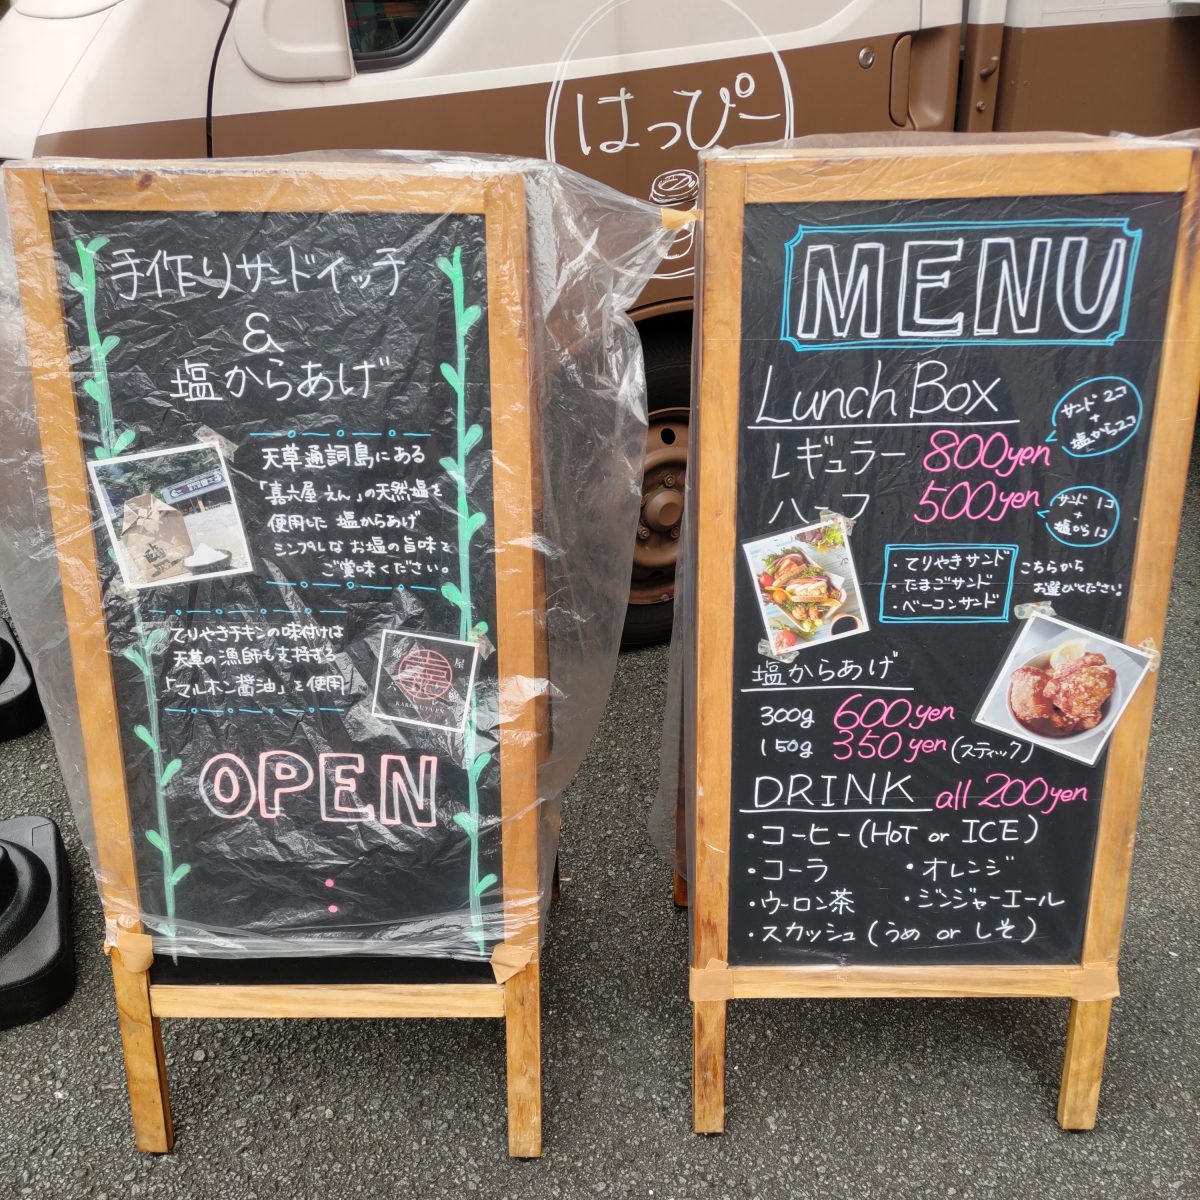 はっぴー
手作りサンドイッチ
&
塩からあげ
天草通詞島にある
「嘉六屋えん」の天然塩を
使用した 塩からあげ
シンプルな お塩の旨味を
ご賞味ください。
てりやきチキンの味付けは
天草の漁師も支持する
「マルホン醤油」を使用
OPEN
MENU
Lunch Box
レギュラー 800yen
サンド 2コ
+
塩から2コ
ハーフ 500yen
サンド 1コ
+
塩から1コ
・てりやきサンド
・たまごサンド
・ベーコンサンド
こちらから
お選びください。
塩からあげ
300g 600yen
150g 350yen (スティック)
DRINK all 200yen
・コーヒー (HOT or ICE)
・コーラ ・オレンジ
・ウーロン茶 ・ジンジャーエール
・スカッシュ (うめ or しそ)